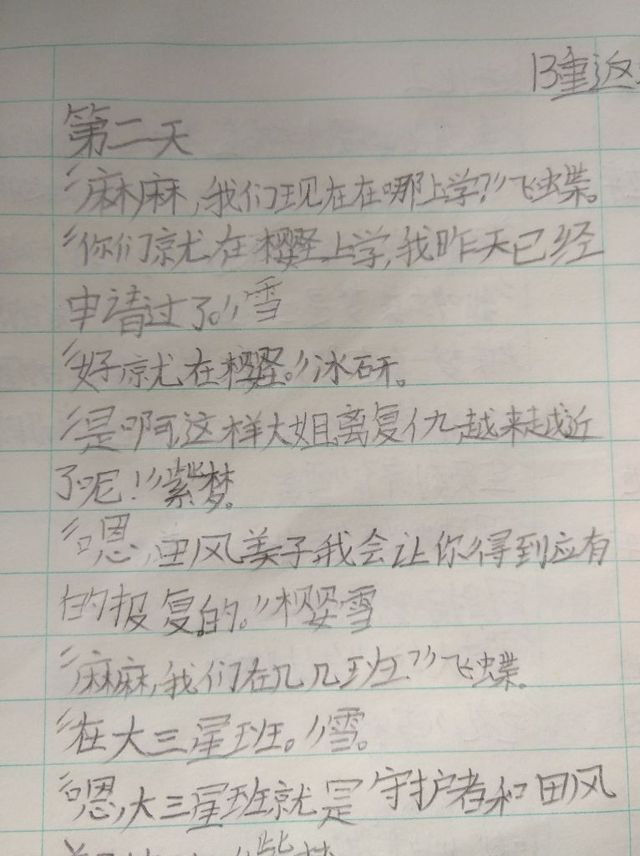 13重返
第二天
“麻麻,我们现在在哪上学?”飞蝶。
“你们就在樱上学,我昨天已经
申请过了。”雪
“好就在樱。”冰研。
“是啊,这样大姐离复仇越来越近
了呢!”紫梦。
“嗯,田风美子我会让你得到应有
的报复的。”樱雪
“麻麻,我们在几几班?”飞蝶。
“在大三星班。”雪。
“嗯,大三星班就是守护者和田风